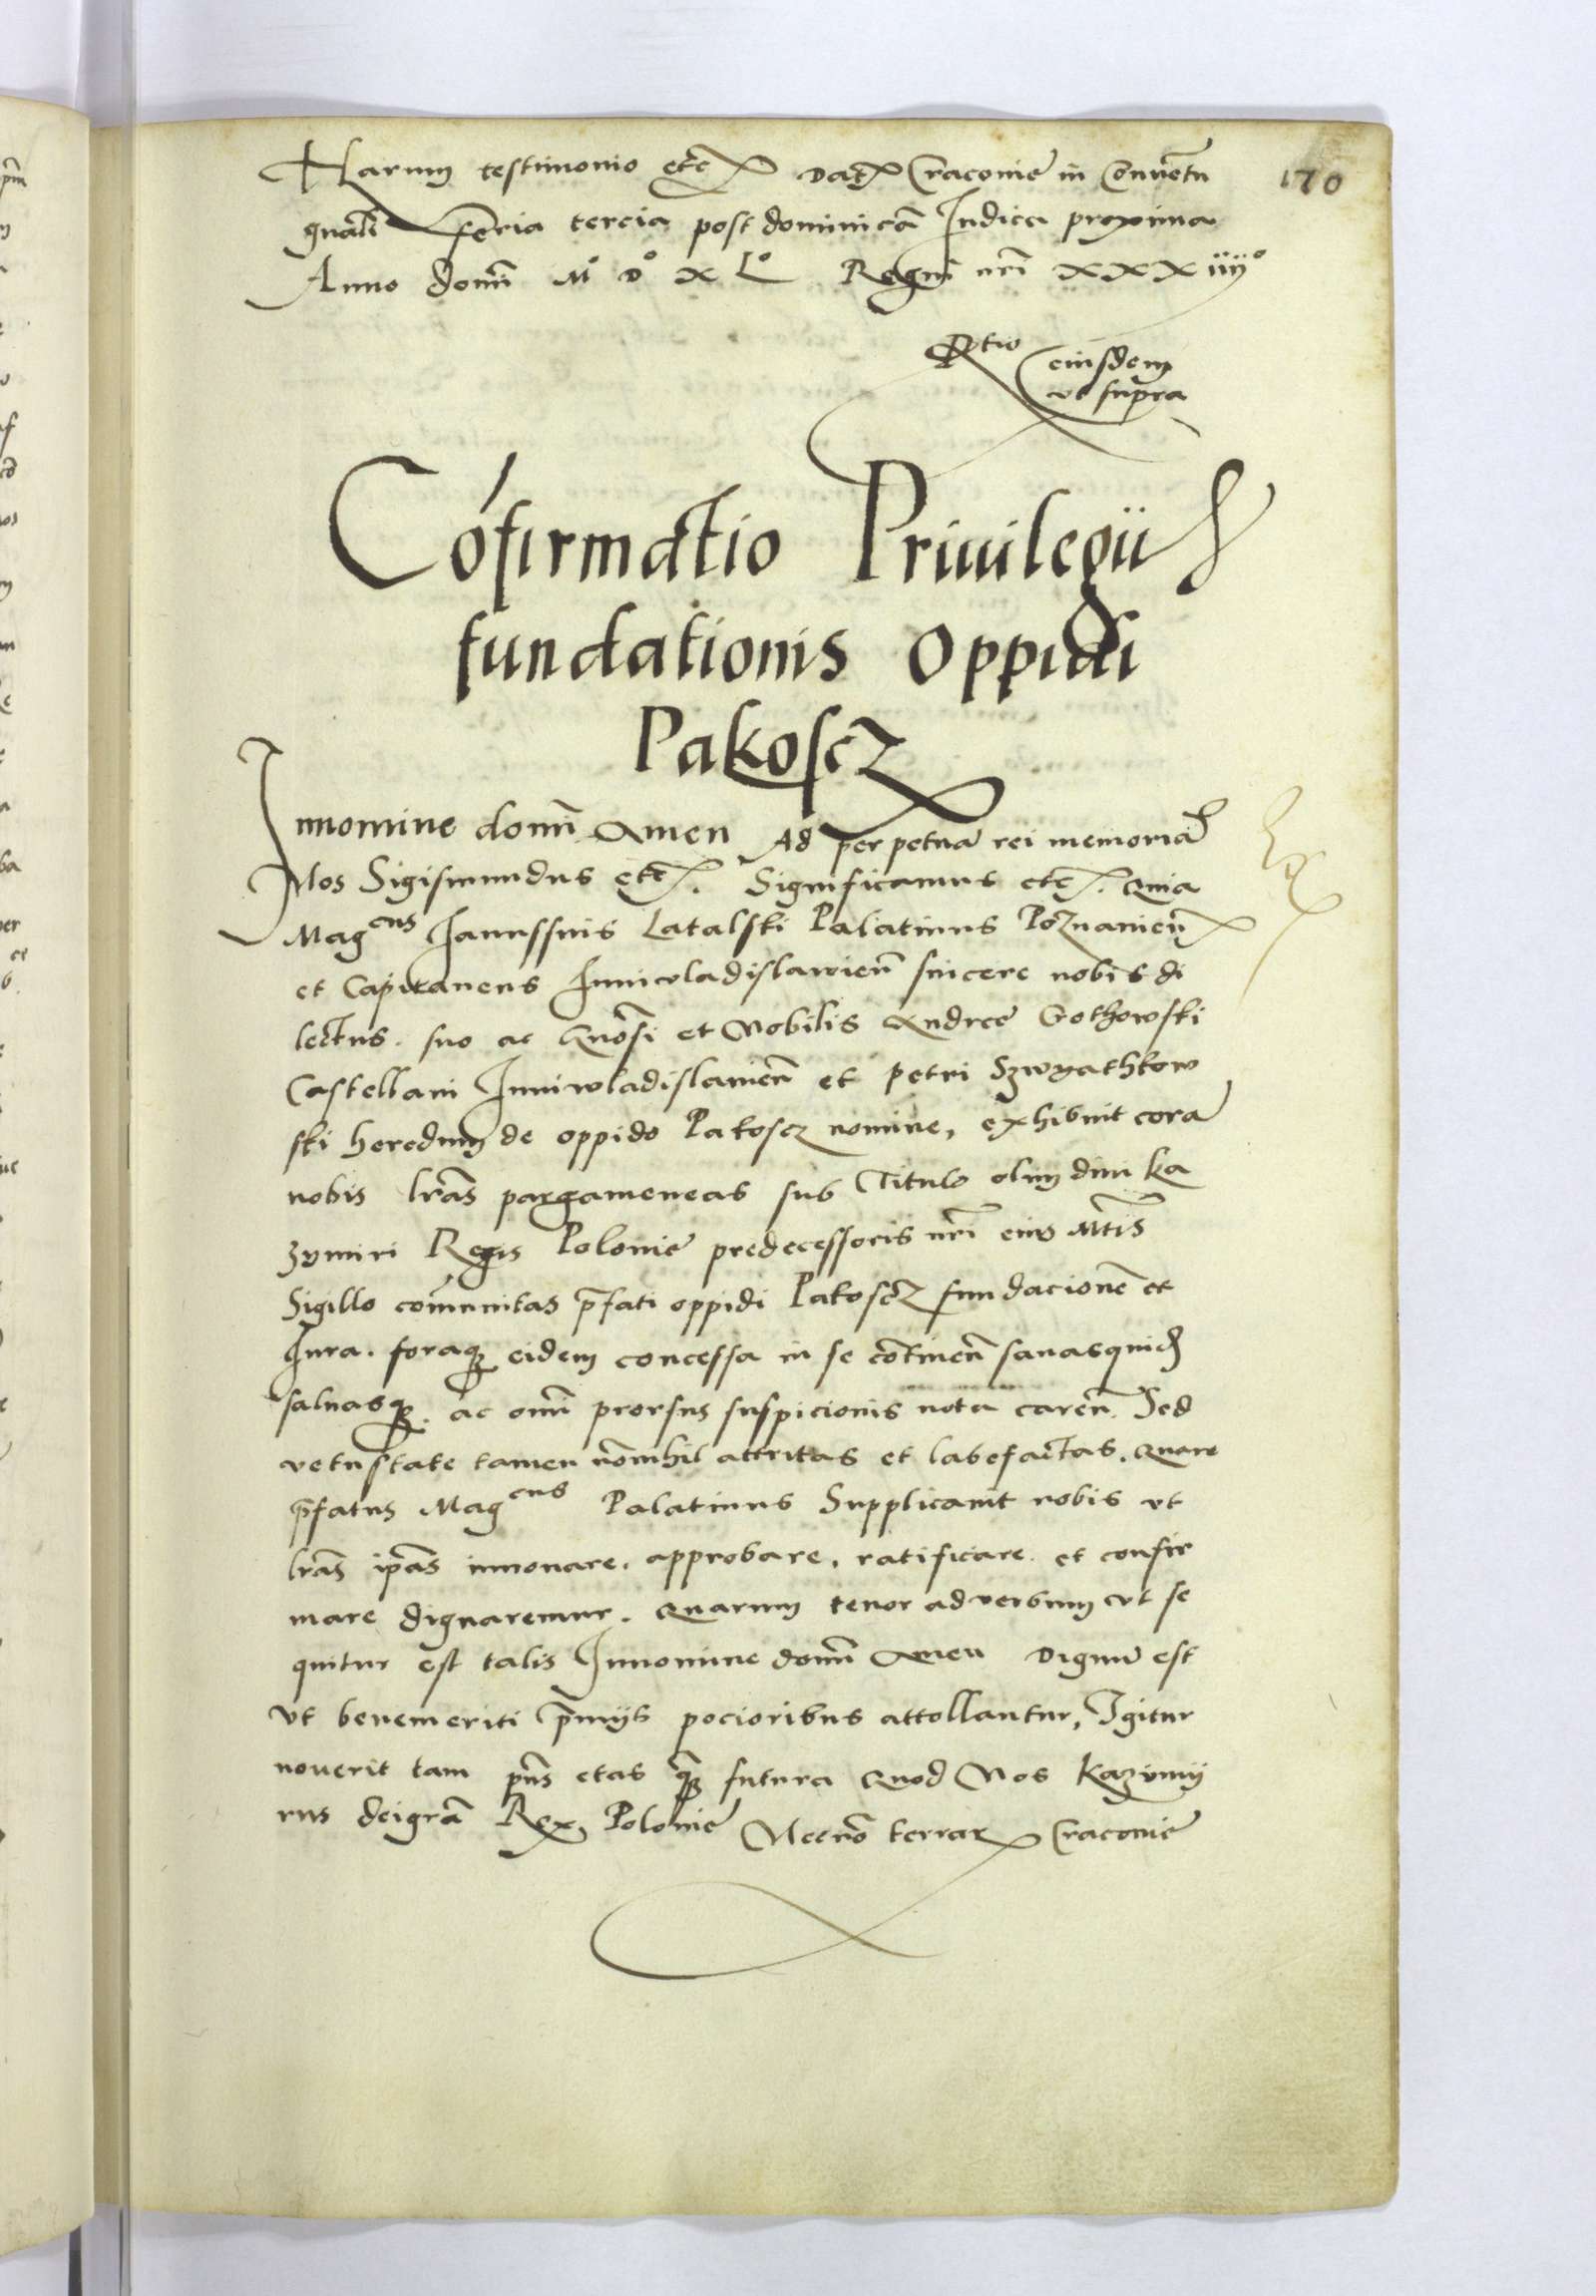 Harum testimonio etc̃ Dat Cracovie in Conuẽtu 170
gn̄ali feria tercia post dominicã Judica proxima
Anno domĩ M° D° XL° Regni nr̃i XXXiiij°
Rtio eiusdem
vt supra
Cõfirmatio Priuilegii
fundationis Oppidi
Pakoscz
Innomine domĩ Amen Ad perpetuã rei memoriã
Nos Sigismundus etc̃. Significamus etc̃. Quia
Magcus Janussius Latalski Palatinus Poznanień
et Capitaneus Juniwladislawień sincere nobis di
lectus. suo ac Gnõsi et Nobilis Andree Gothowski
Castellani Juniwladislaviẽn et Petri Szwyathkow
ski heredum de oppido Pakoscz nomine, exhibuit corã
nobis lr̃as pargameneas sub Titulo olim diui Ka
zymiri Regis Polonie predecessoris nr̃i eius Mt̃is
Sigillo comũnitas p̃fati oppidi Pakoscz fundacionẽ et
Jura. foraq; eidem concessa in se cõtineñ sanasquid
saluasq;. ac omĩ prorsus suspicionis nota careñ. Sed
vetustate tamen nõnihil attritas et labefactas. Quare
p̃fatus Magcus Palatinus Supplicauit nobis vt
lr̃as ip̃as innouare. approbare. ratificare. et confir
mare dignaremur. Quarum tenor ad verbum vt se
quitur est talis Innomine domĩ Amen Dignũ est
vt benemeriti p̃mijs pocioribus attollantur, Igitur
nouerit tam pñs etas q̃; futura Quod Nos Kazimij
rus deigrã Rex Polonie Necnõ terrar Cracovie